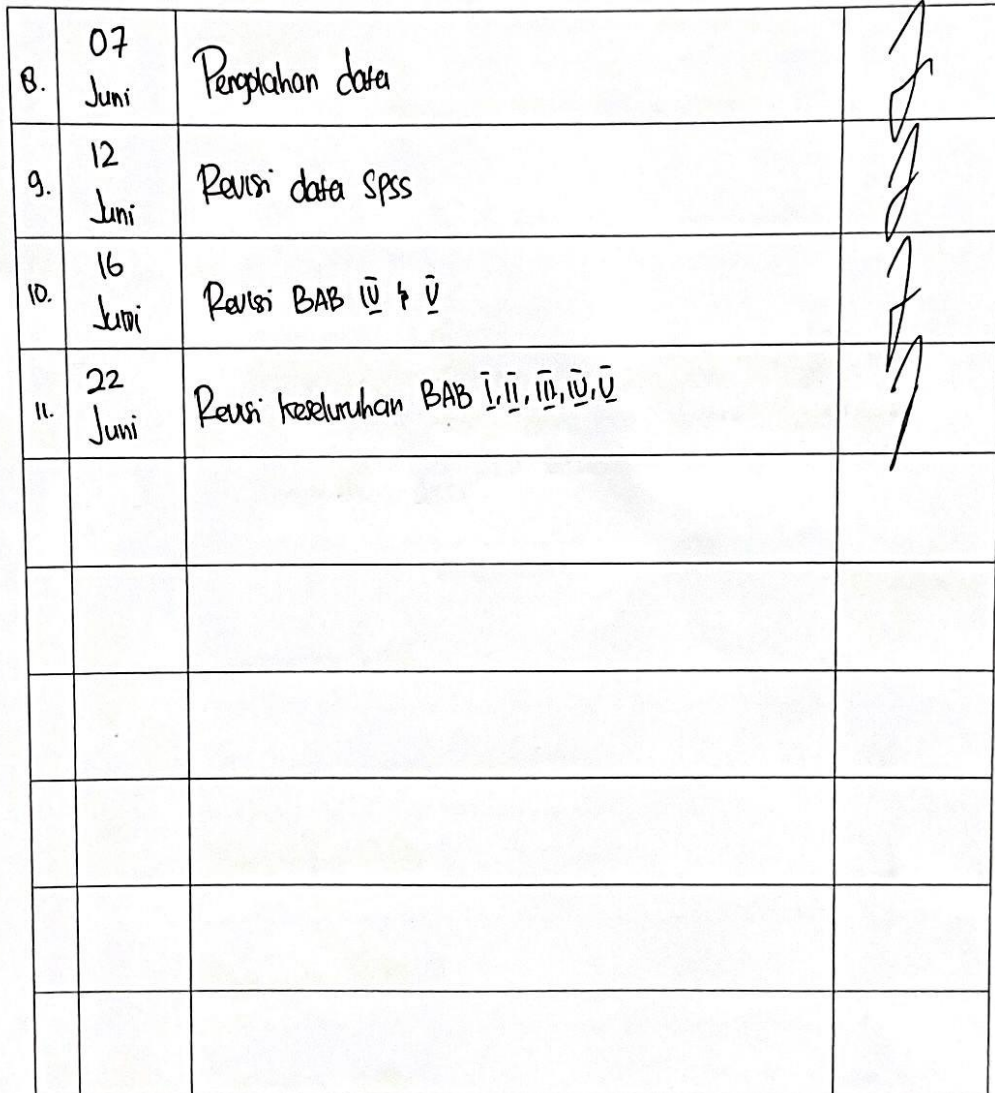 8.
07
Juni
Pengolahan data
9.
12
Juni
Revisi data SPSS
10.
16
Juni
Revisi BAB IV & V
11.
22
Juni
Revisi keseluruhan BAB I, II, III, IV, V